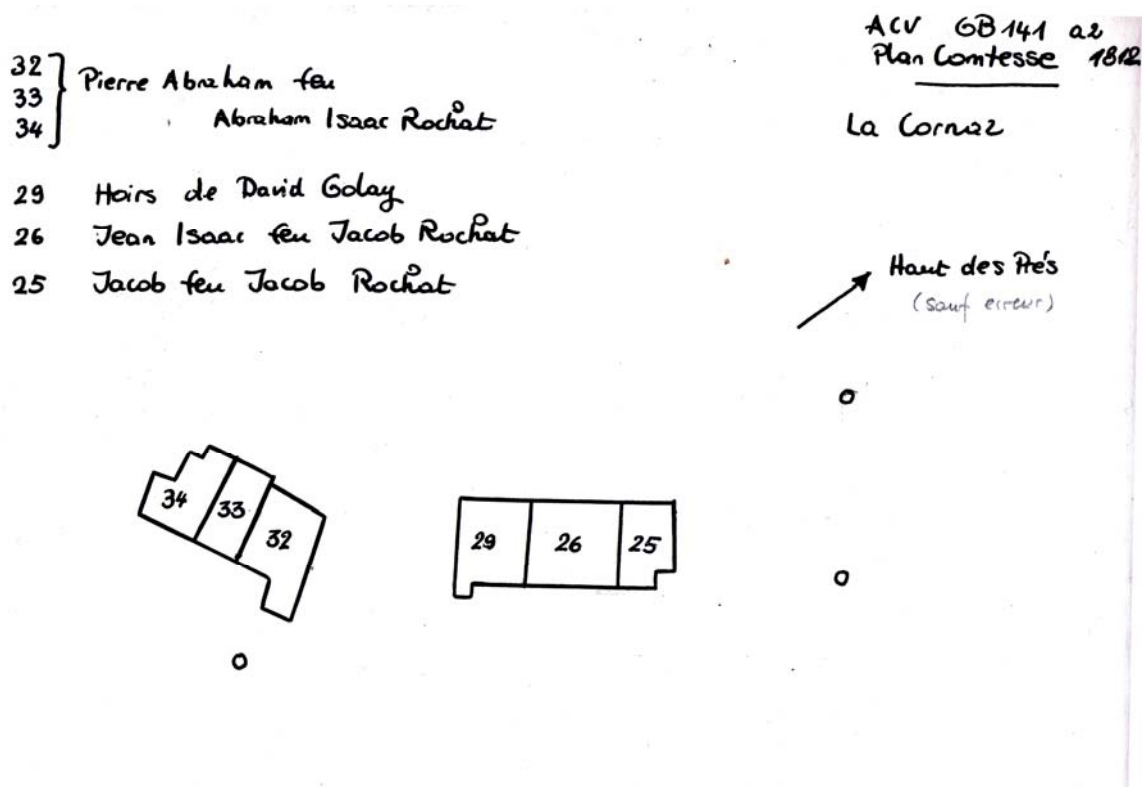 ACV GB 141 a2
Plan Comtesse 1812
La Cornaz
32
33
34
Pierre Abraham feu
Abraham Isaac Rochat
29 Hoirs de David Golay
26 Jean Isaac feu Jacob Rochat
25 Jacob feu Jacob Rochat
Haut des Prés
(sauf erreur)
34 33 32
29 26 25